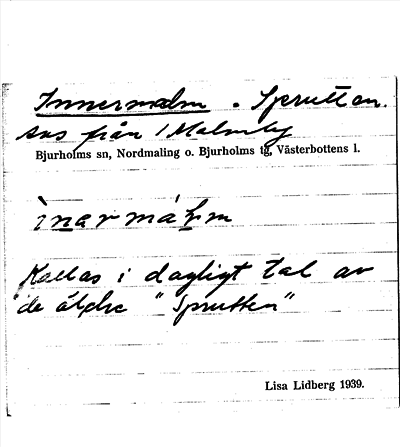 Innermalm. Sprutten.
Avs från 1 Malmby
Bjurholms sn, Nordmaling o. Bjurholms tg, Västerbottens l.
ìnarmáḷm
Kallas i dagligt tal av
de äldre "Sprutten"
Lisa Lidberg 1939.